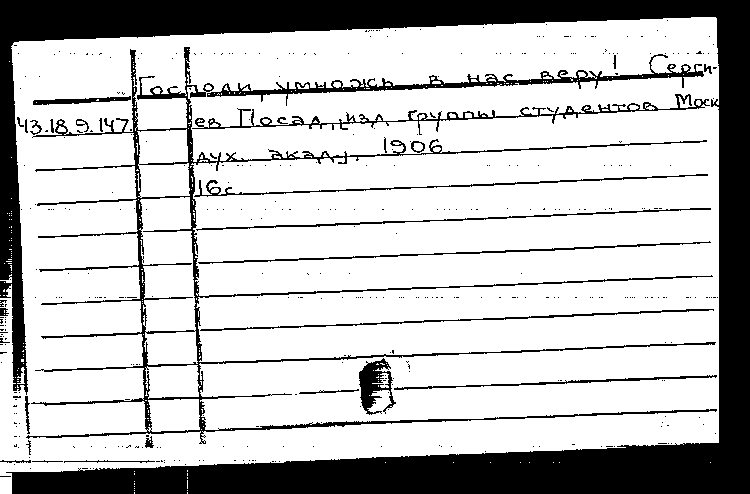 Господи, умножь в нас веру! Серги-
43.18.9.147. ев Посад, изд. группы студентов Моск
дух. акад., 1906.
16с.